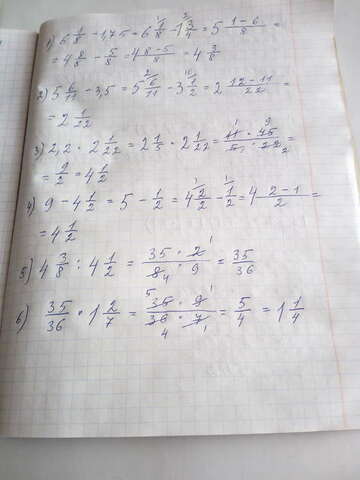 1) 6 1/8 - 1,75 = 6 1/8 - 1 3/4 = 5 (1-6)/8 =
= 4 8/8 - 5/8 = 4 (8-5)/8 = 4 3/8
2) 5 6/11 - 3,5 = 5 6/11 - 3 1/2 = 2 (12-11)/22 =
= 2 1/22
3) 2,2 · 2 1/22 = 2 1/5 · 2 1/22 = (11 · 45)/(5 · 22) =
= 9/2 = 4 1/2
4) 9 - 4 1/2 = 5 - 1/2 = 4 2/2 - 1/2 = 4 (2-1)/2 =
= 4 1/2
5) 4 3/8 : 4 1/2 = (35 · 2)/(8 · 9) = 35/36
6) 35/36 · 1 2/7 = (35 · 9)/(36 · 7) = 5/4 = 1 1/4